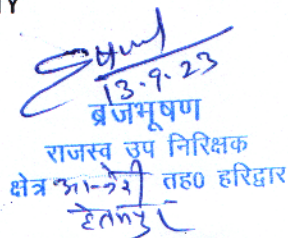 13.9.23
ब्रजभूषण
राजस्व उप निरिक्षक
क्षेत्र आन्नेकी तह0 हरिद्वार
हेतमपुर